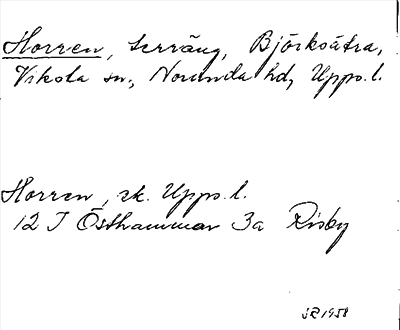 Horren, terräng, Björksätra,
Viksta sn, Norunda hd, Upps. l.
Horren, ek. Upps. l.
12 I Östhammar 3a Risby
SR 1958